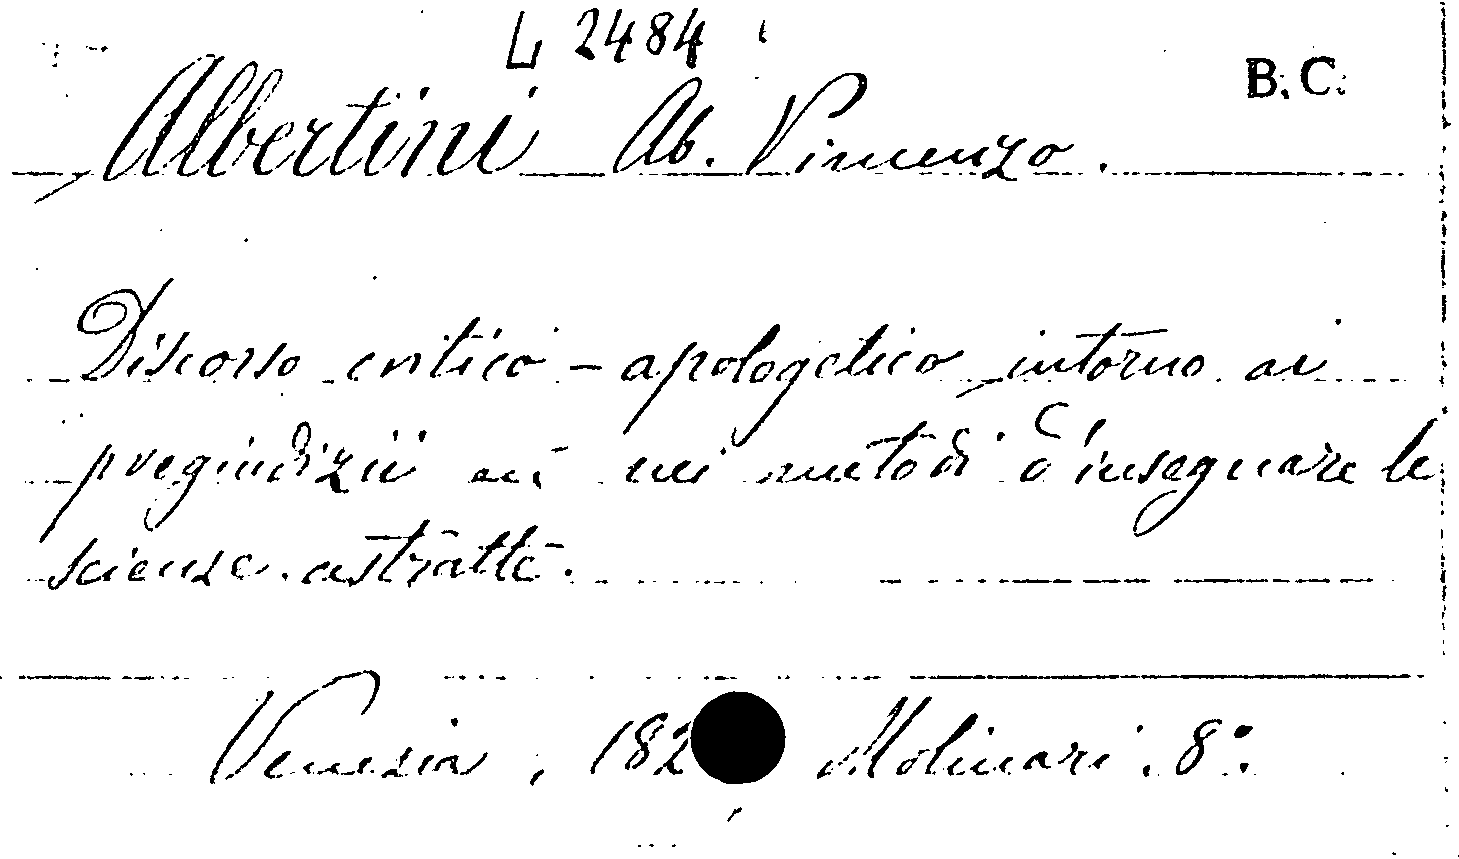 L 2484
B. C.
Albertini Ab. Vincenzo.
Discorso critico - apologetico intorno ai
pregiudizii nei metodi d'insegnare le
scienze astratte.
Venezia, 182 Molinari. 8°.